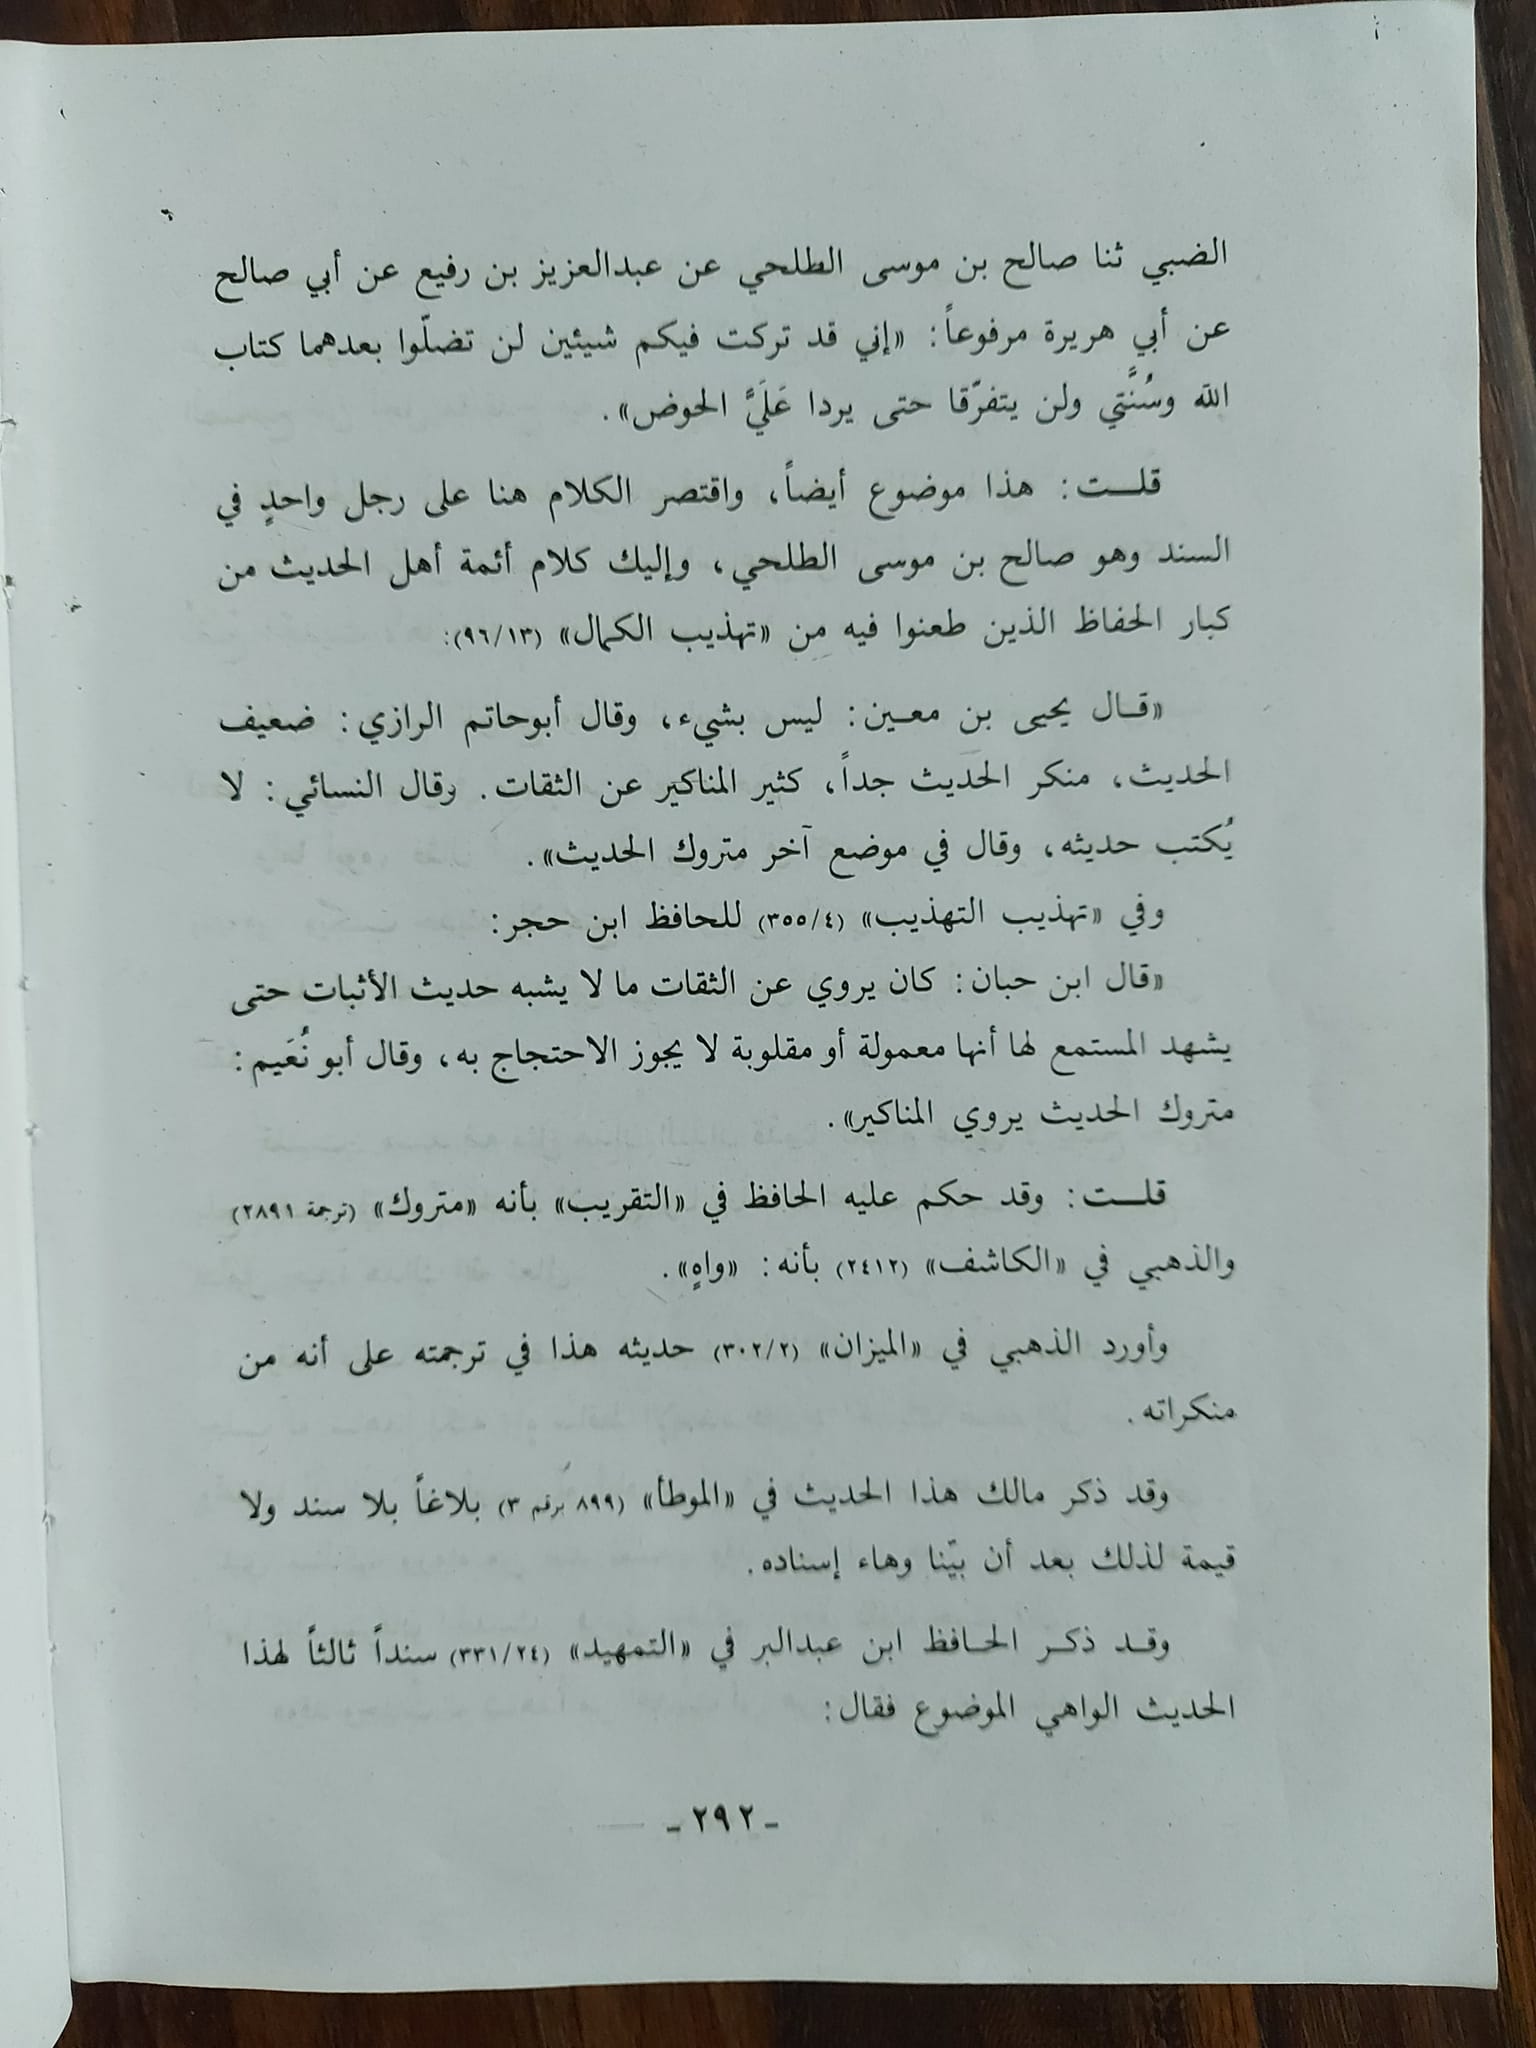 الضبي ثنا صالح بن موسى الطلحي عن عبدالعزيز بن رفيع عن أبي صالح
عن أبي هريرة مرفوعاً: «إني قد تركت فيكم شيئين لن تضلّوا بعدهما كتاب
الله وسُنَّتي ولن يتفرّقا حتى يردا عَلَيَّ الحوض».
قلـــت: هذا موضوع أيضاً، واقتصر الكلام هنا على رجل واحدٍ في
السند وهو صالح بن موسى الطلحي، وإليك كلام أئمة أهل الحديث من
كبار الحفاظ الذين طعنوا فيه من «تهذيب الكمال» (٩٦/١٣):
«قـال يحيى بن معـين: ليس بشيء، وقال أبوحاتم الرازي: ضعيف
الحديث، منكر الحديث جداً، كثير المناكير عن الثقات. وقال النسائي: لا
يُكتب حديثه، وقال في موضع آخر متروك الحديث».
وفي «تهذيب التهذيب» (٣٥٥/٤) للحافظ ابن حجر:
«قال ابن حبان: كان يروي عن الثقات ما لا يشبه حديث الأثبات حتى
يشهد المستمع لها أنها معمولة أو مقلوبة لا يجوز الاحتجاج به، وقال أبو نُعَيم:
متروك الحديث يروي المناكير».
قلـــت: وقد حكم عليه الحافظ في «التقريب» بأنه «متروك» (ترجمة ٢٨٩١)
والذهبي في «الكاشف» (٢٤١٢) بأنه: «واهٍ».
وأورد الذهبي في «الميزان» (٣٠٢/٢) حديثه هذا في ترجمته على أنه من
منكراته.
وقد ذكر مالك هذا الحديث في «الموطأ» (٨٩٩ برقم ٣) بلاغاً بلا سند ولا
قيمة لذلك بعد أن بيّنا وهاء إسناده.
وقـد ذكـر الحـافظ ابن عبدالبر في «التمهيد» (٣٣١/٢٤) سنداً ثالثاً لهذا
الحديث الواهي الموضوع فقال:
- ٢٩٢ -